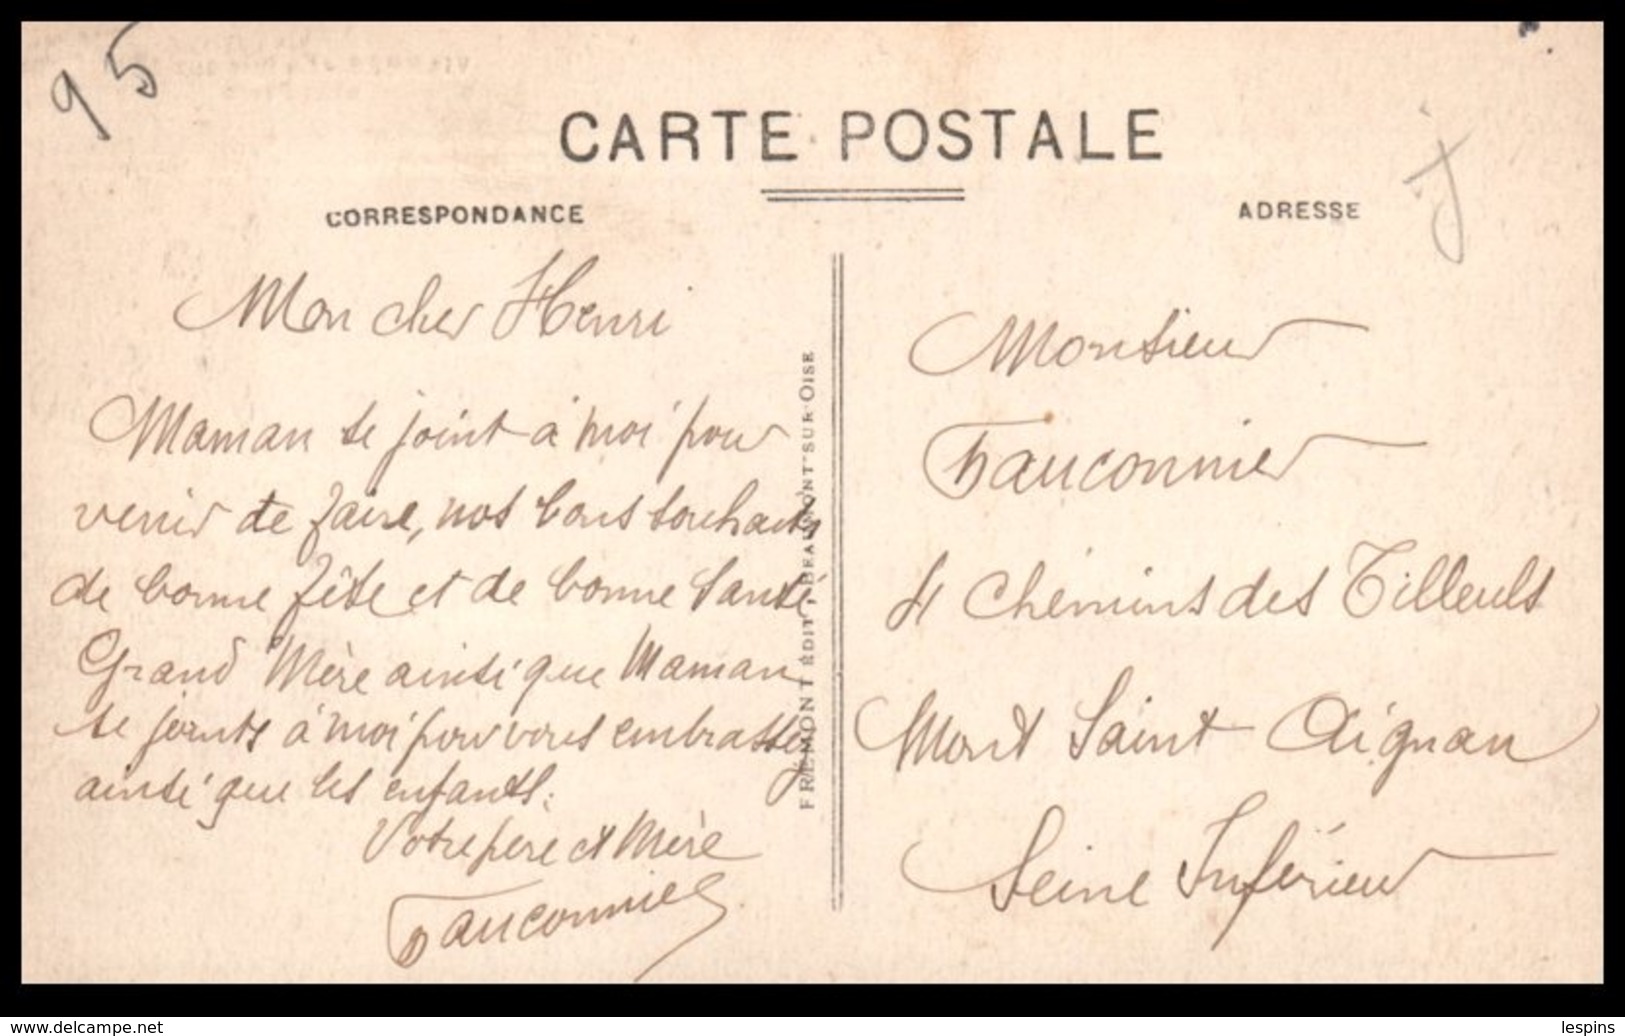 95
CARTE POSTALE
CORRESPONDANCE
ADRESSE
Mon cher Henri
Maman se joint à moi pour
venir te faire, nos bons souhaits
de bonne fête et de bonne santé
Grand Mère ainsi que Maman
se joints à moi pour vous embrasser
ainsi que les enfants.
Votre père et Mère
Fauconnier
FRÉMONT ÉDIT, BEAUMONT-SUR-OISE
Monsieur
Fauconnier
4 Chemins des Tilleuls
Mont Saint Aignan
Seine Inférieur
www.delcampe.net
lespins